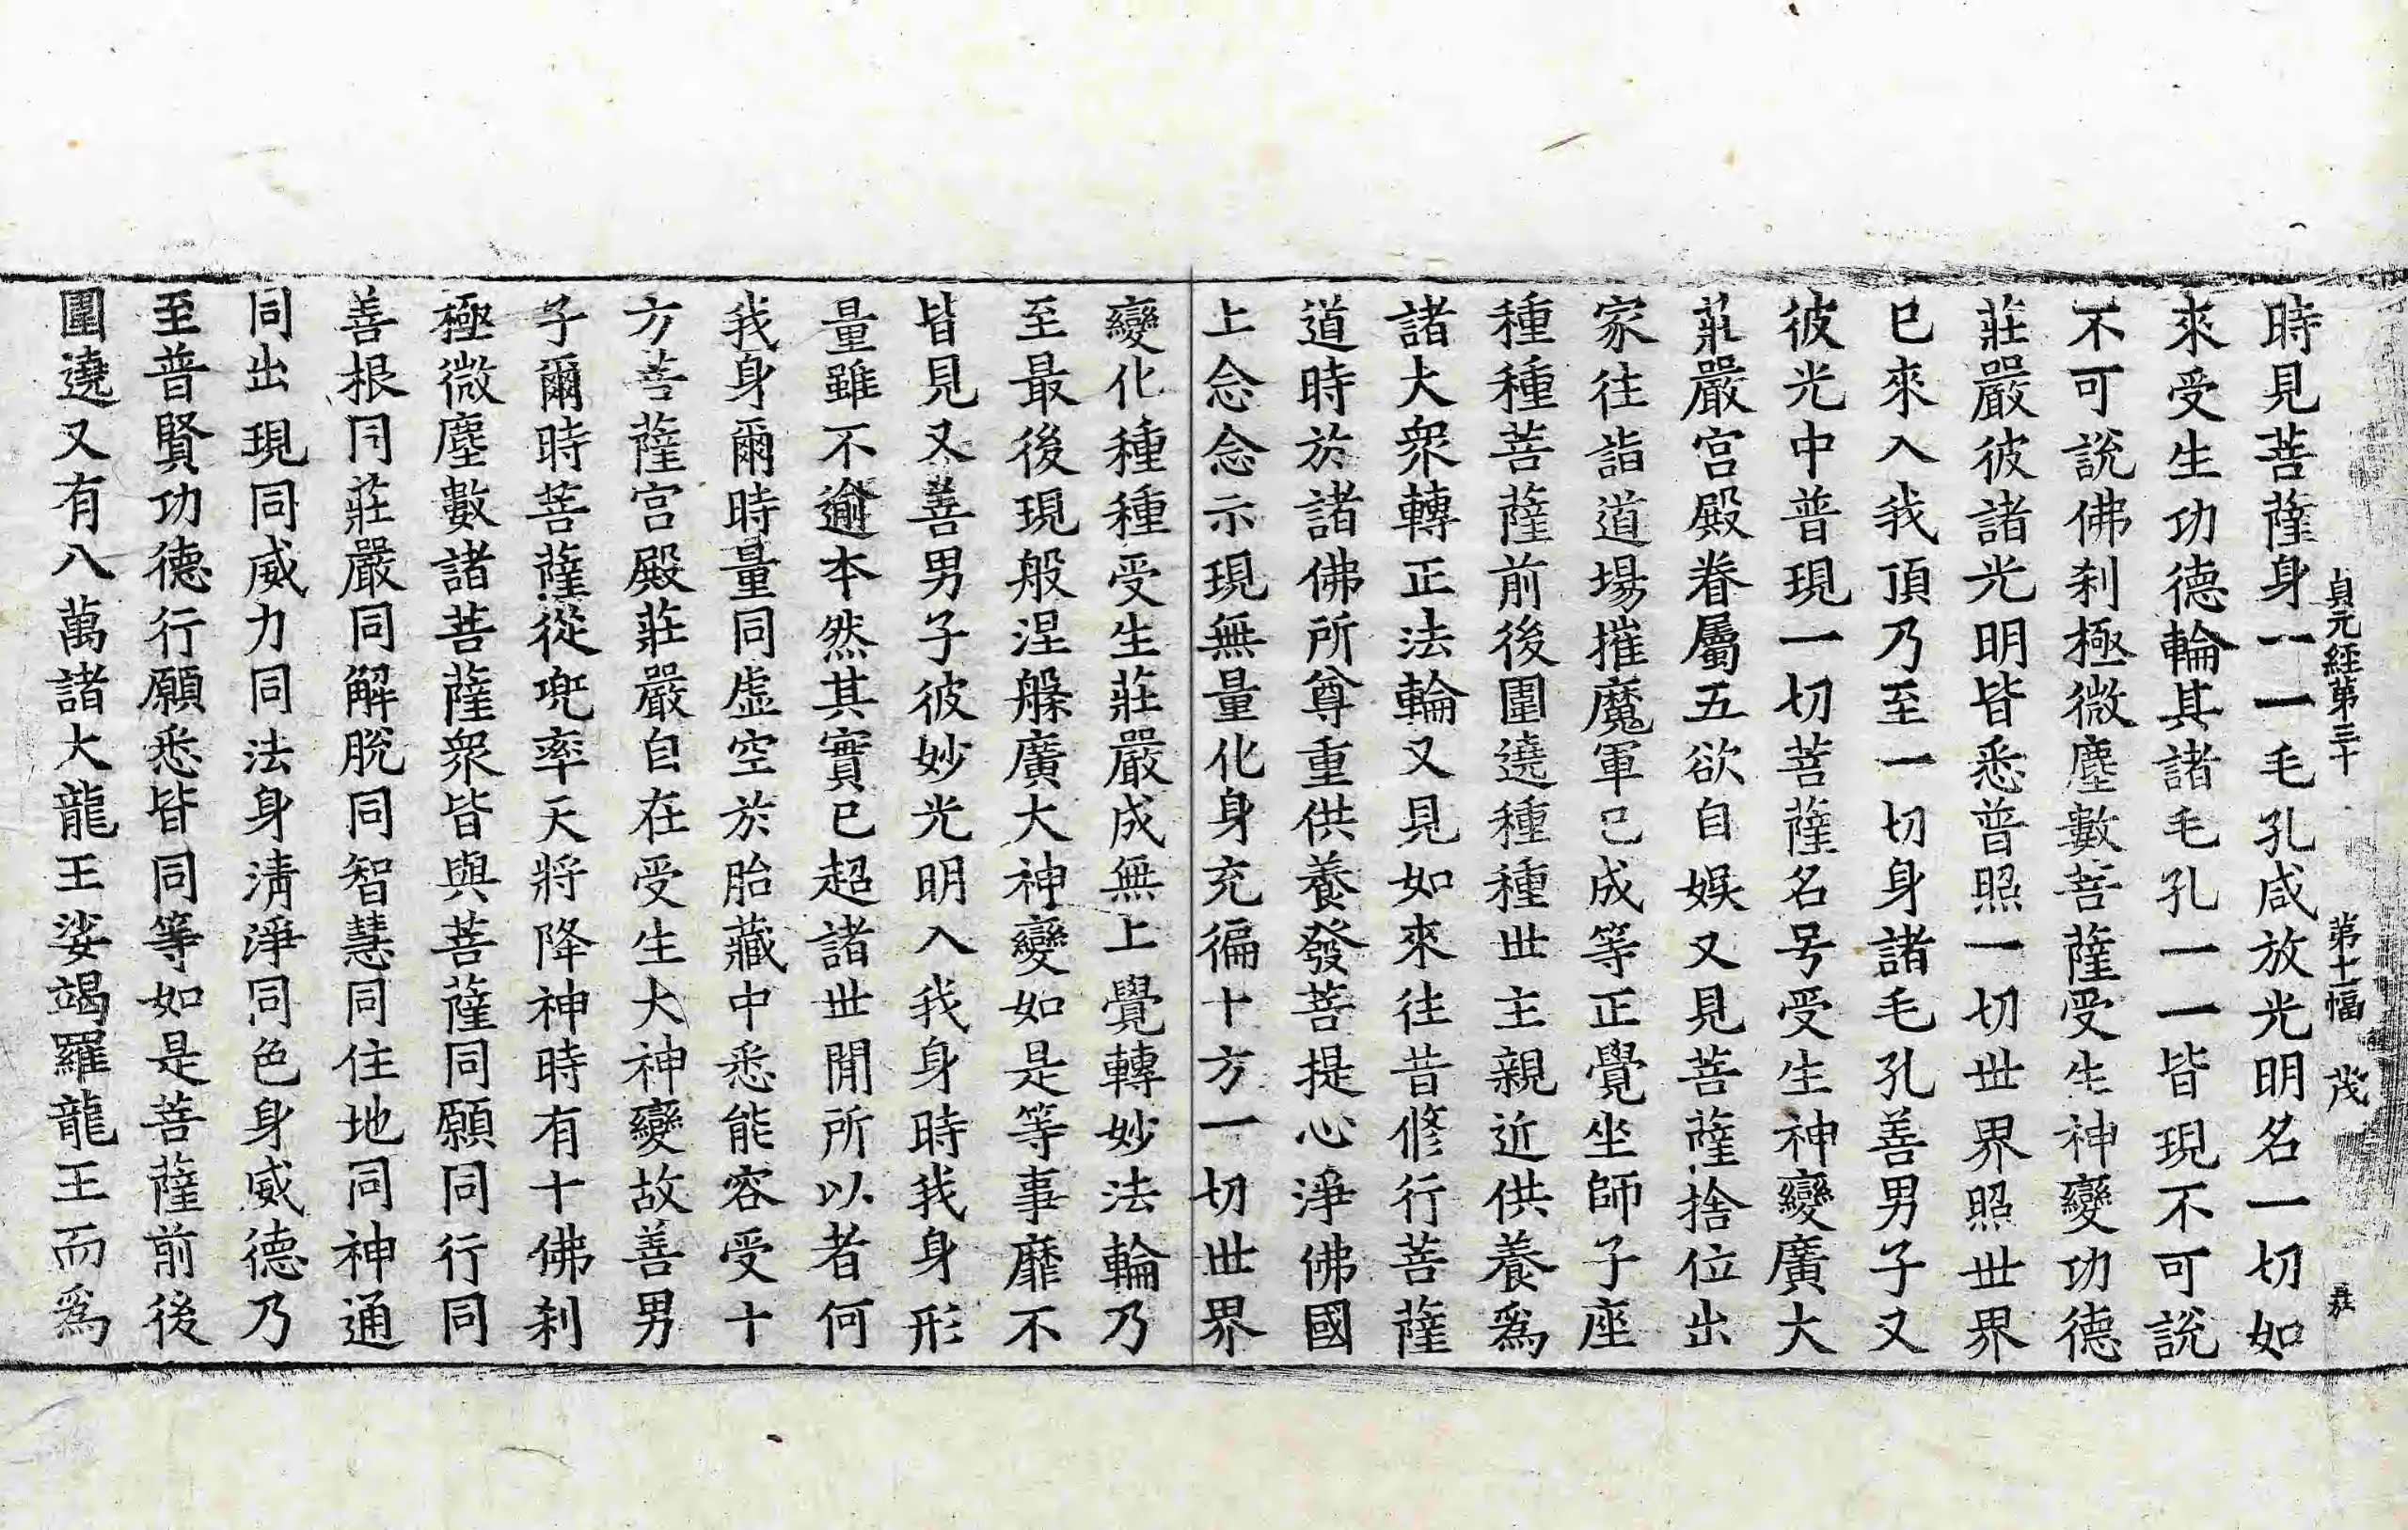 貞元經第三十 第十二幅 茂
時見菩薩身一一毛孔咸放光明名一切如
來受生功德輪其諸毛孔一一皆現不可說
不可說佛刹極微塵數菩薩受生神變功德
莊嚴彼諸光明皆悉普照一切世界照世界
已來入我頂乃至一切身諸毛孔善男子又
彼光中普現一切菩薩名号受生神變廣大
莊嚴宮殿眷屬五欲自娛又見菩薩捨位出
家往詣道場摧魔軍已成等正覺坐師子座
種種菩薩前後圍遶種種世主親近供養爲
諸大衆轉正法輪又見如來往昔修行菩薩
道時於諸佛所尊重供養發菩提心淨佛國
上念念示現無量化身充徧十方一切世界
變化種種受生莊嚴成無上覺轉妙法輪乃
至最後現般涅槃廣大神變如是等事靡不
皆見又善男子彼妙光明入我身時我身形
量雖不逾本然其實已超諸世閒所以者何
我身爾時量同虛空於胎藏中悉能容受十
方菩薩宮殿莊嚴自在受生大神變故善男
子爾時菩薩從兜率天將降神時有十佛刹
極微塵數諸菩薩衆皆與菩薩同願同行同
善根同莊嚴同解脫同智慧同住地同神通
同出現同威力同法身清淨同色身威德乃
至普賢功德行願悉皆同等如是菩薩前後
圍遶又有八萬諸大龍王娑竭羅龍王而爲